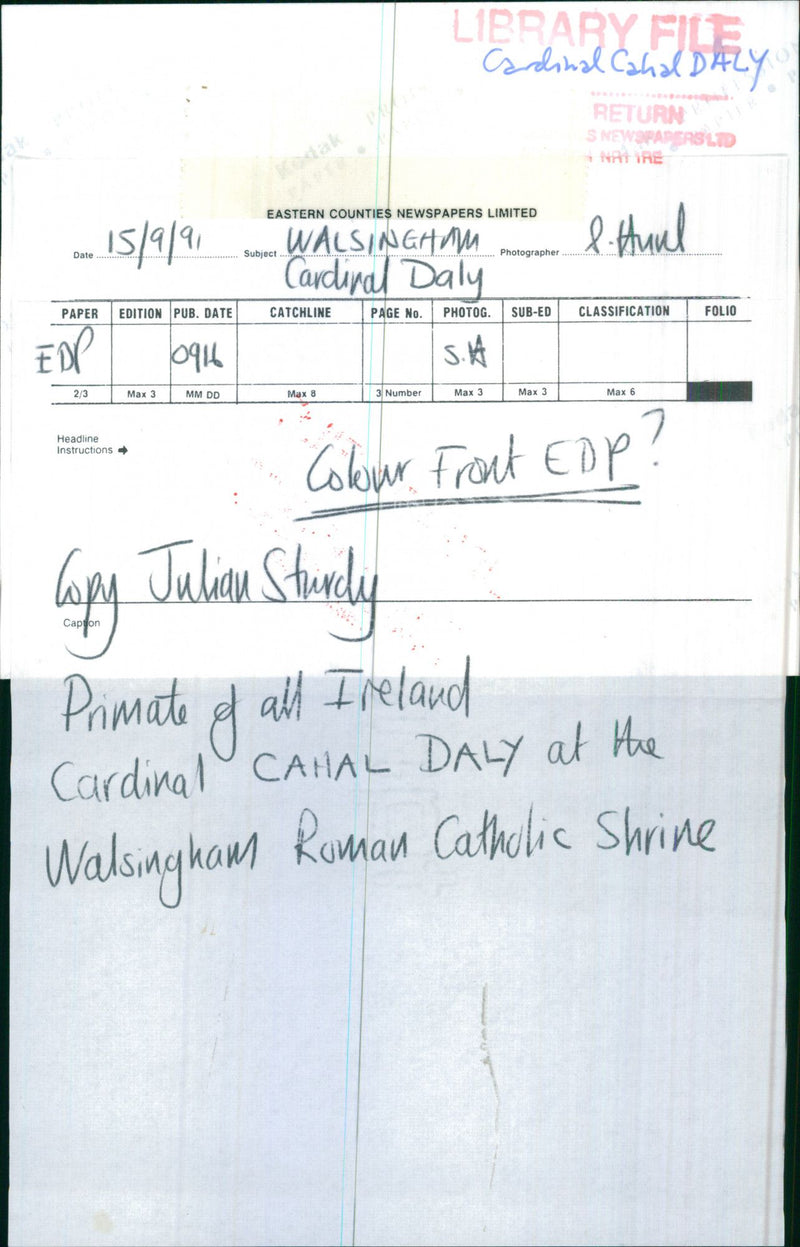 LIBRARY FILE
Cardinal Cahal DALY
RETURN
S NEWSPAPERS LTD
Kodak
EASTERN COUNTIES NEWSPAPERS LIMITED
Date 15/9/91 Subject WALSINGHAM Photographer S. Hunt
Cardinal Daly
PAPER EDITION PUB. DATE CATCHLINE PAGE No. PHOTOG. SUB-ED CLASSIFICATION FOLIO
EDP 0916 S.H
2/3 Max 3 MM DD Max 8 3 Number Max 3 Max 3 Max 6
Headline
Instructions
Colour Front EDP?
Copy Julian Sturdy
Caption
Primate of all Ireland
Cardinal CAHAL DALY at the
Walsingham Roman Catholic Shrine